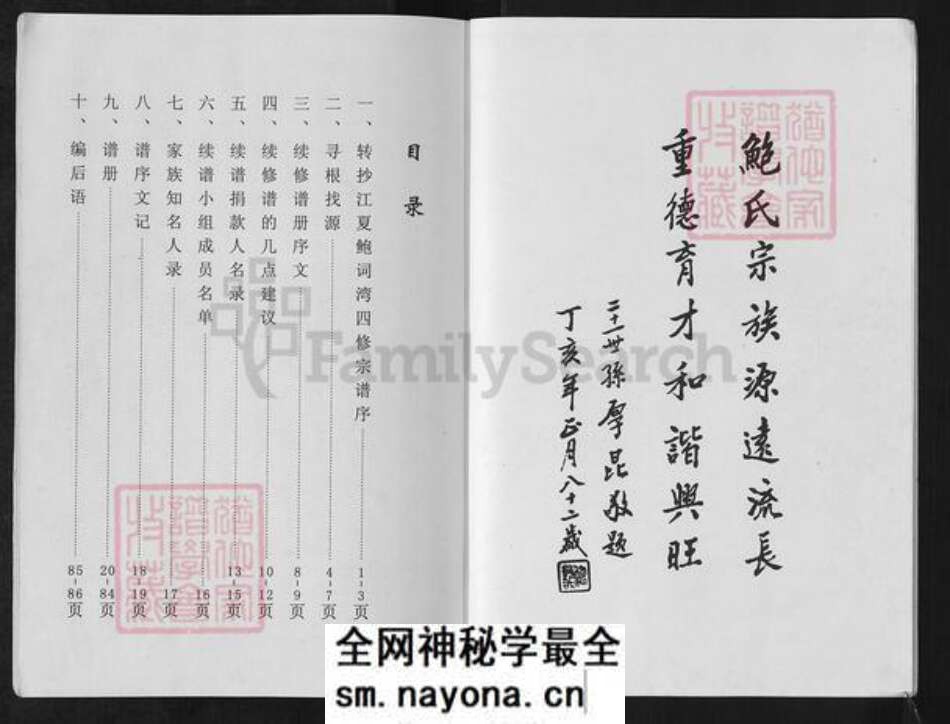 鲍氏宗族源遠流長
重德育才和諧興旺
二十一世孫厚昆敬題
丁亥年正月八十二歲
目录
一、转抄江夏鲍词湾四修宗谱序 1-3页
二、寻根找源 4-7页
三、续修谱册序文 8-9页
四、续修谱的几点建议 10-12页
五、续谱捐款人名录 13-15页
六、续谱小组成员名单 16页
七、家族知名人录 17页
八、谱序文记 18-19页
九、谱册 20-84页
十、编后语 85-86页
FamilySearch
全网神秘学最全
sm.nayona.cn